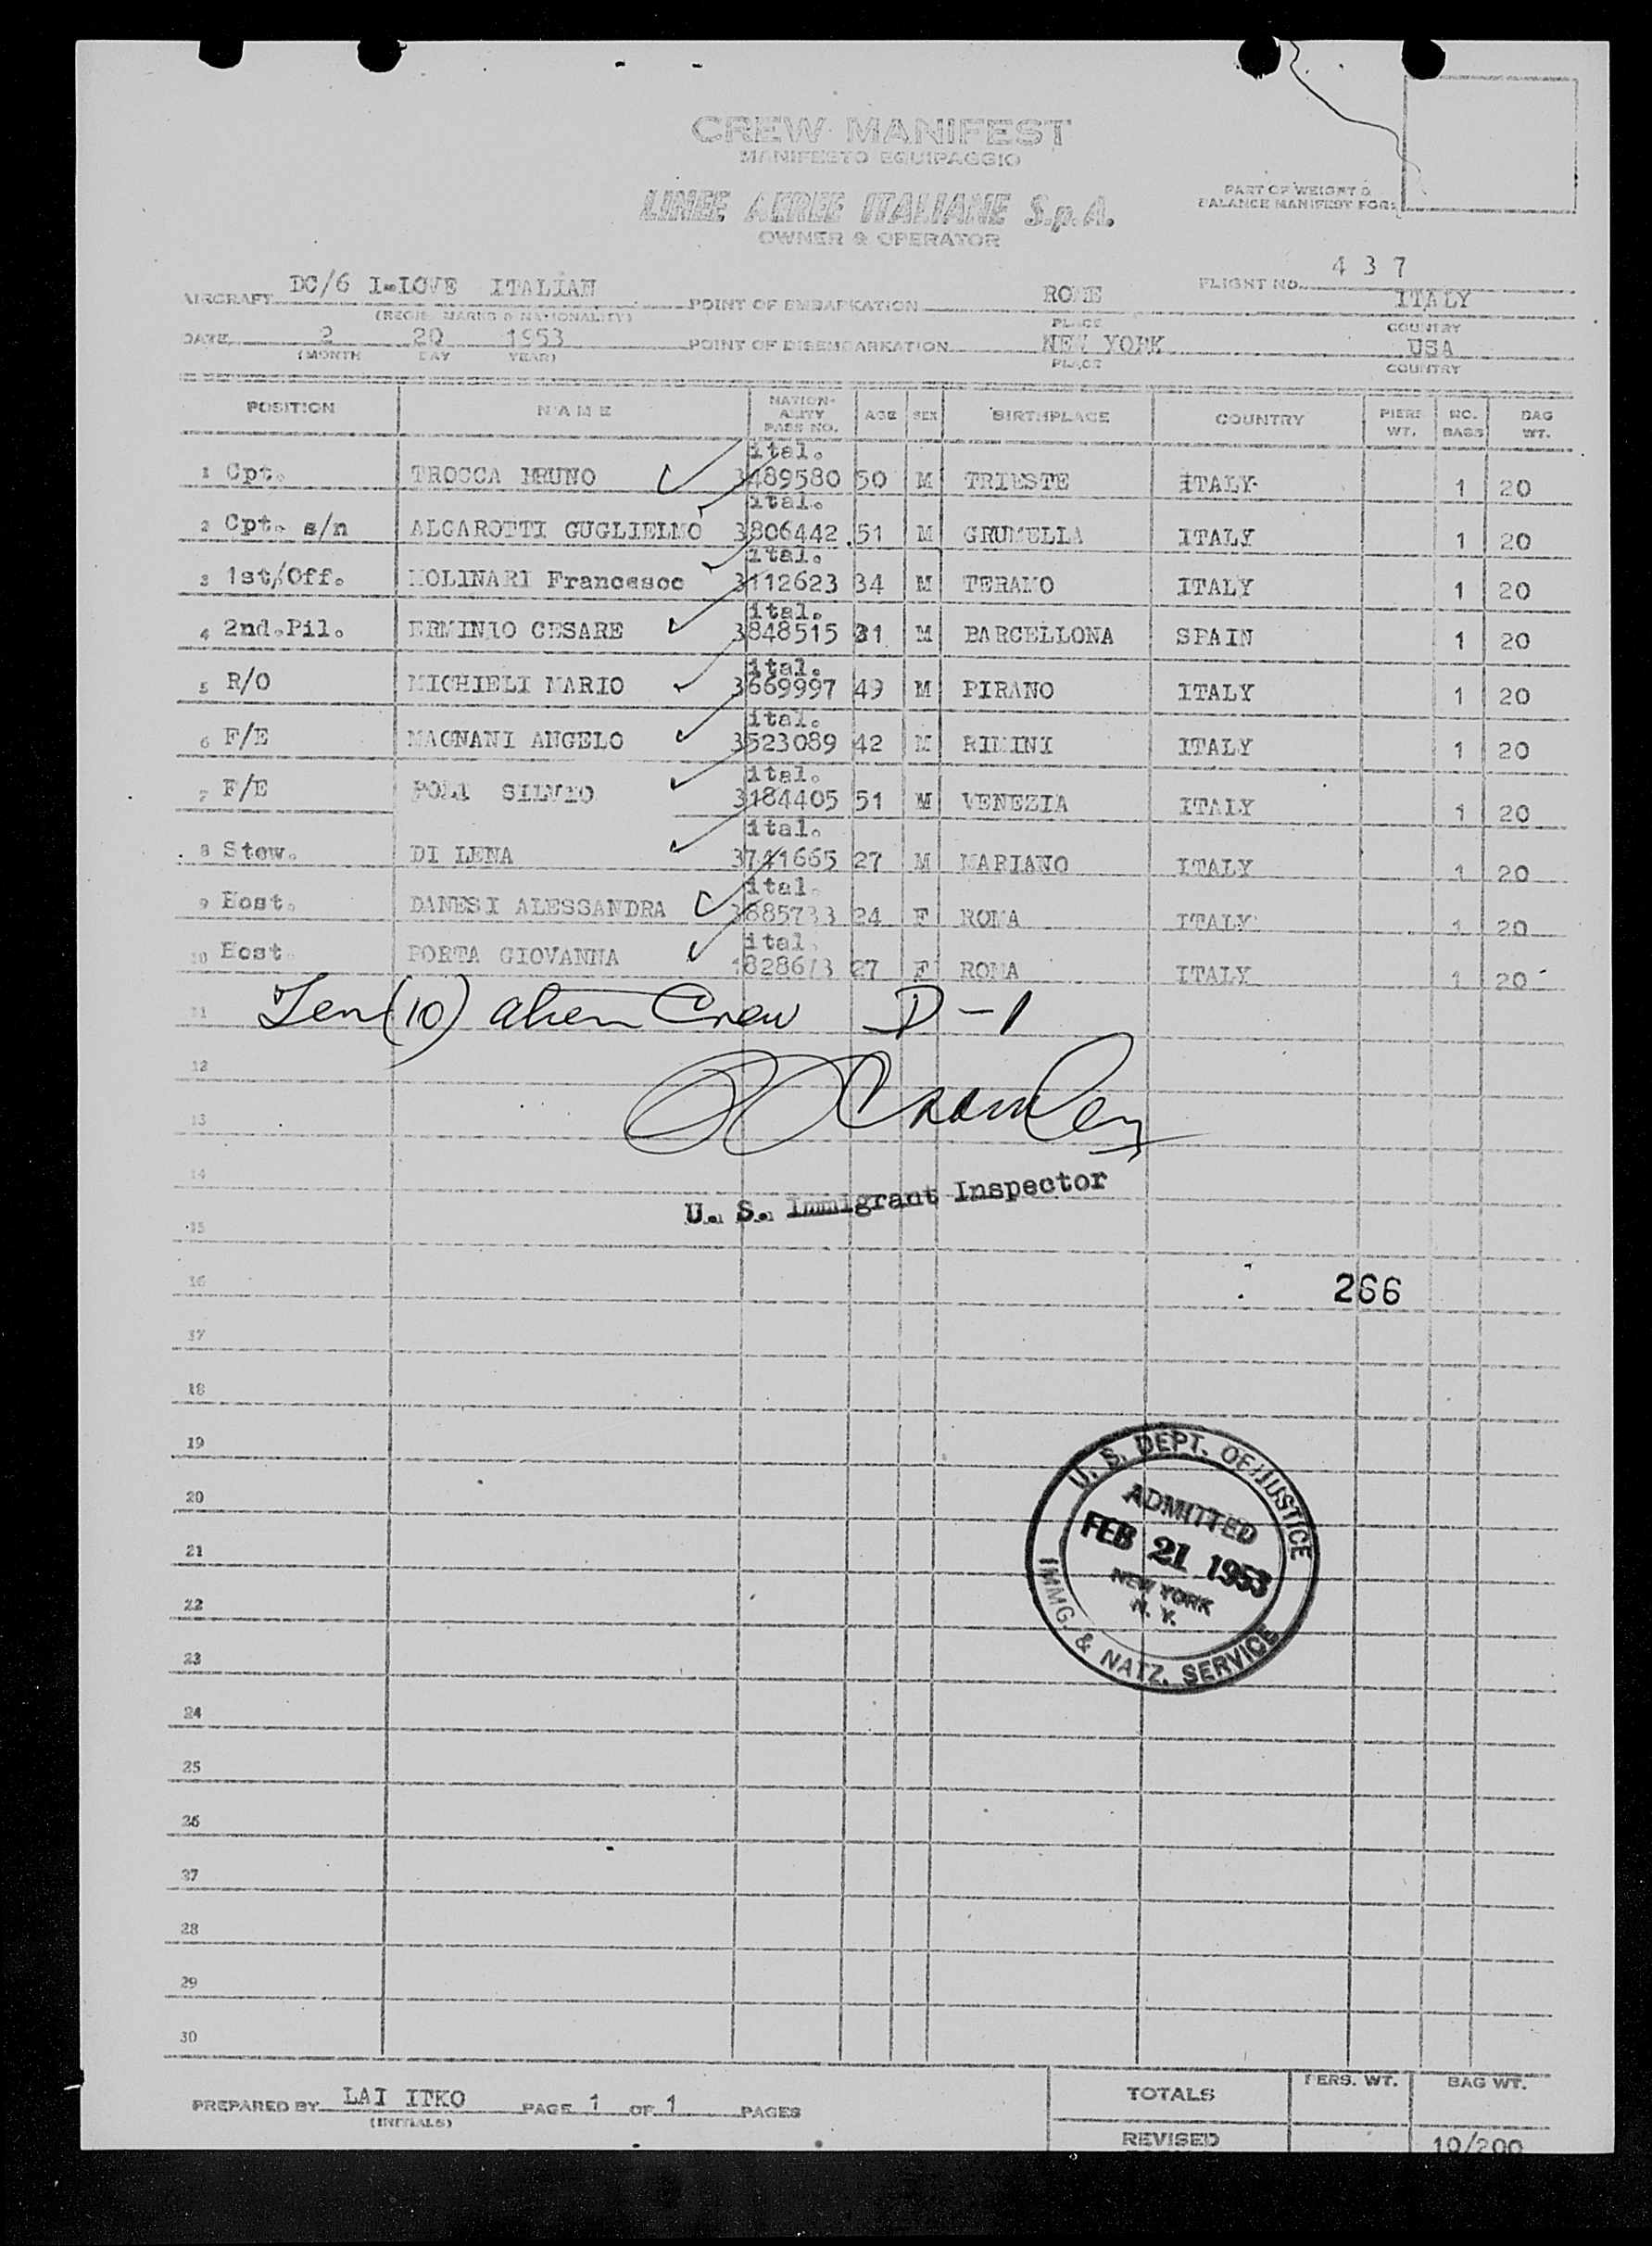 CREW MANIFEST
MANIFESTO EQUIPAGGIO
LINEE AEREE ITALIANE S.p.A.
OWNER & OPERATOR
PART OF WEIGHT &
BALANCE MANIFEST FOR:
AIRCRAFT DC/6 I-LOVE ITALIAN POINT OF EMBARKATION ROME ITALY FLIGHT NO. 4 3 7
(REGIS. MARKS & NATIONALITY) PLACE COUNTRY
DATE 2 20 1953 POINT OF DISEMBARKATION NEW YORK USA
(MONTH DAY YEAR) PLACE COUNTRY
POSITION NAME NATION-ALITY PASS NO. AGE SEX BIRTHPLACE COUNTRY PIERS WT. NO. BAGS BAG WT.
ital.
1 Cpt. TROCCA BRUNO 3489580 50 M TRIESTE ITALY 1 20
ital.
2 Cpt. s/n ALCAROTTI GUGLIELMO 3806442 51 M GRUMELLA ITALY 1 20
ital.
3 1st/Off. MOLINARI Francesco 3112623 34 M TERAMO ITALY 1 20
ital.
4 2nd.Pil. ERMINIO CESARE 3848515 31 M BARCELLONA SPAIN 1 20
ital.
5 R/O MICHIELI MARIO 3669997 49 M PIRANO ITALY 1 20
ital.
6 F/E MAGNANI ANGELO 3523089 42 M RIMINI ITALY 1 20
ital.
7 F/E POLI SILVIO 3184405 51 M VENEZIA ITALY 1 20
ital.
8 Stew. DI LENA 3741665 27 M MARIANO ITALY 1 20
ital.
9 Host. DANESI ALESSANDRA 3885733 24 F ROMA ITALY 1 20
ital.
10 Host. PORTA GIOVANNA 1828673 27 F ROMA ITALY 1 20
11 Ten (10) alien Crew D-1
12
13
14
U. S. Immigrant Inspector
15
16 266
17
18
19
20
21
22
23
24
25
26
27
28
29
30
U. S. DEPT. OF JUSTICE
ADMITTED
FEB 21 1953
NEW YORK
N. Y.
IMMG. & NATZ. SERVICE
PREPARED BY LAI ITKO PAGE 1 OF 1 PAGES
(INITIALS)
TOTALS PERS. WT. BAG WT.
REVISED 10/200